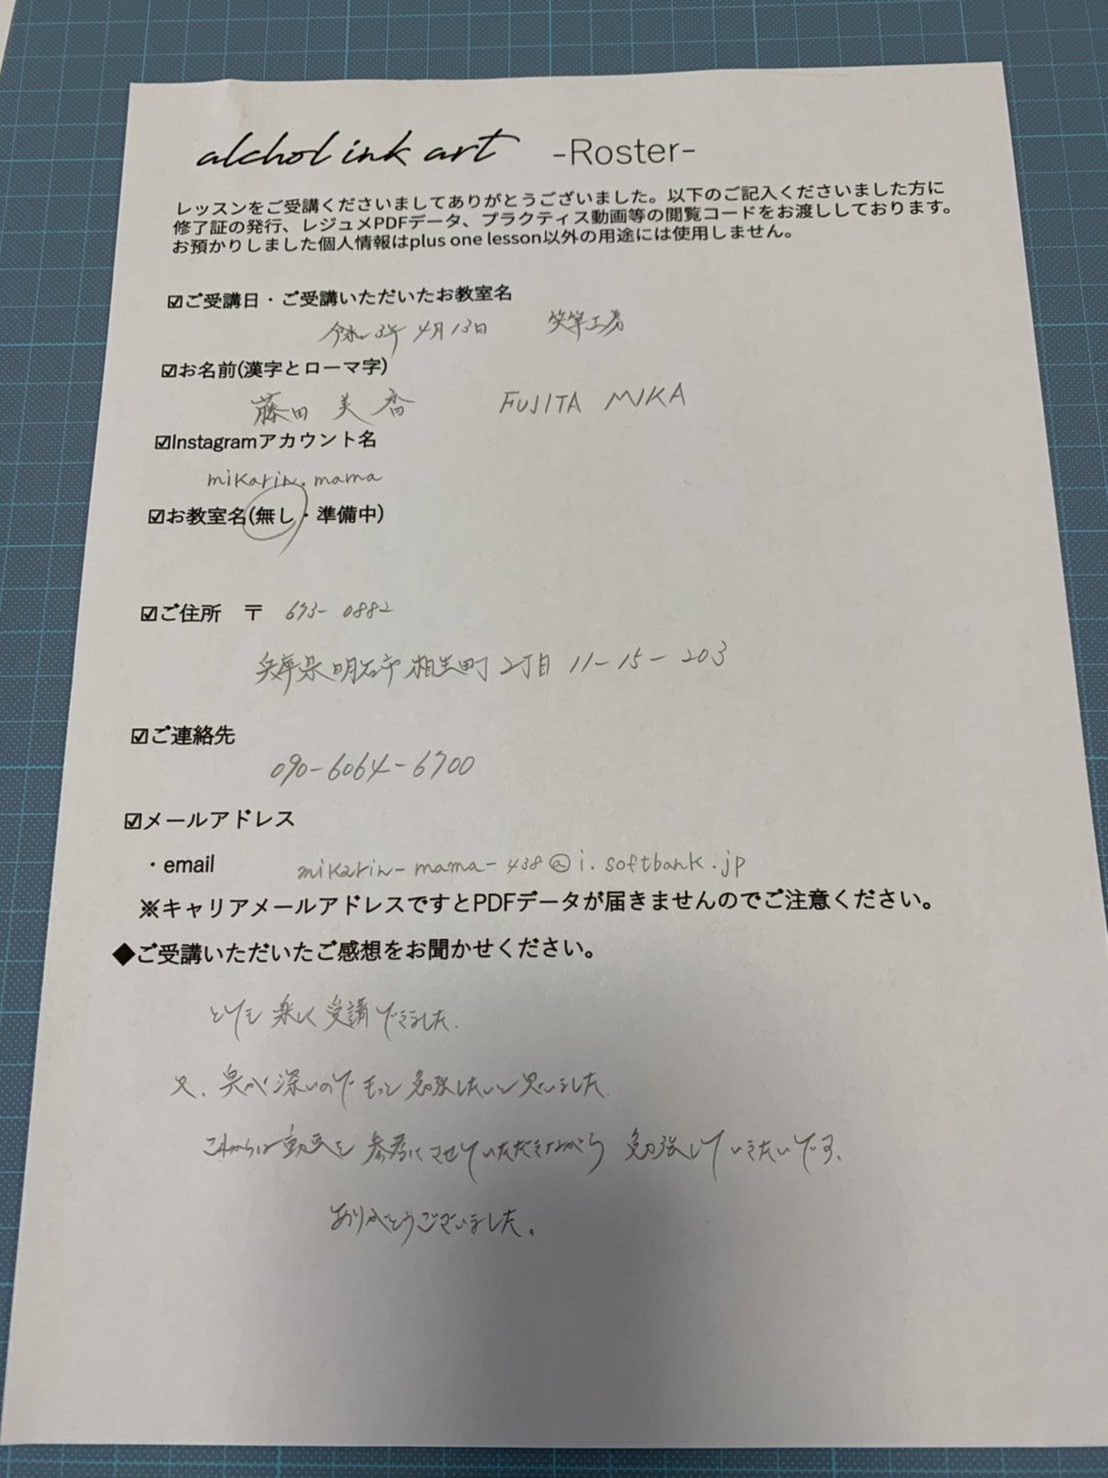 alchol ink art -Roster-
レッスンをご受講くださいましてありがとうございました。以下のご記入くださいました方に
修了証の発行、レジュメPDFデータ、プラクティス動画等の閲覧コードをお渡ししております。
お預かりしました個人情報はplus one lesson以外の用途には使用しません。
☑ご受講日・ご受講いただいたお教室名
令和3年 4月13日 笑筆工房
☑お名前(漢字とローマ字)
藤田 美香 FUJITA MIKA
☑Instagramアカウント名
mikarin.mama
☑お教室名(無し・準備中)
☑ご住所 〒 673-0882
兵庫県明石市相生町2丁目11-15-203
☑ご連絡先
090-6064-6700
☑メールアドレス
・email mikarin-mama-438@i.softbank.jp
※キャリアメールアドレスですとPDFデータが届きませんのでご注意ください。
◆ご受講いただいたご感想をお聞かせください。
とても楽しく受講できました。
又、奥が深いのでもっと勉強したいと思いました。
これからは動画を参考にさせていただきながら勉強していきたいです。
ありがとうございました。